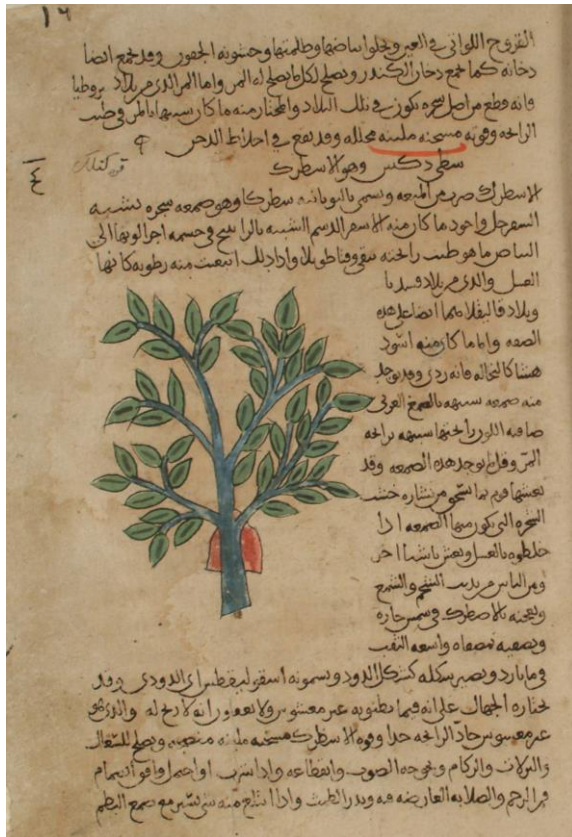 القروح اللواتي في العين ويجلوا بياضها وظلمتها وخشونه الجفون وقد يجمع ايضا
دخانه كما يجمع دخان الكندر ويصلح لكل ما يصلح له المر واما المر الذي من بلاد
فانه قطع من اصل شجره يكون في تلك البلاد والمختار منه ما كان شبيها بالمر في طيب
الرائحه وقوته مسخنه ملينه محلله وقد يقع في اخلاط الدخن
وهو الاسطرك
الاسطرك ضرب من الميعه ويسمى باليونانيه سطركا وهو صمغه شجره تشبه
السفرجل واجود ما كان منه الاشقر الدسم الشبيه بالراتينج في جسمه اجزا لونها الى
البياض ما هو طيب رائحته تبقى وقتا طويلا واذا دلك انبعثت منه رطوبه كانها
العسل والذي من بلاد
وبلاد منهما ايضا على هذه
الصفه واما ما كان منه اسود
هشا كالنخاله فانه ردي وقد يوجد
منه صمغه شبيهه بالصمغ العربي
صافيه اللون رائحتها شبيهه برائحه
المر وقل ما يوجد هذه الصمغه وقد
يغشها قوم بما من نشاره خشب
الشجره التي يكون منها الصمغه اذا
خلطوه بالعسل وبعض اشيا اخر
ومن الناس من يذيب الشحم والشمع
ويعجنه بالاصطرك في شمس حاره
ويصفيه بمصفاه واسعه الثقب
في ما بارد ويصير شكله كشكل الدود ويسمونه اي الدودي وقد
يختاره الجهال على انه فيما يظنونه غير مغشوش ولا انه لا ريح له والذي هو
غير مغشوش حاد الرائحه جدا وقوه الاسطرك مسخنه ملينه منضجه ويصلح للسعال
والنزلات والزكام وبحوحه الصوت وانقطاعه واذا شرب او احتمل وافق انضمام
فم الرحم والصلابه العارضه فيه ويدر الطمث واذا ابتلع منه شي يسير مع صمغ البطم